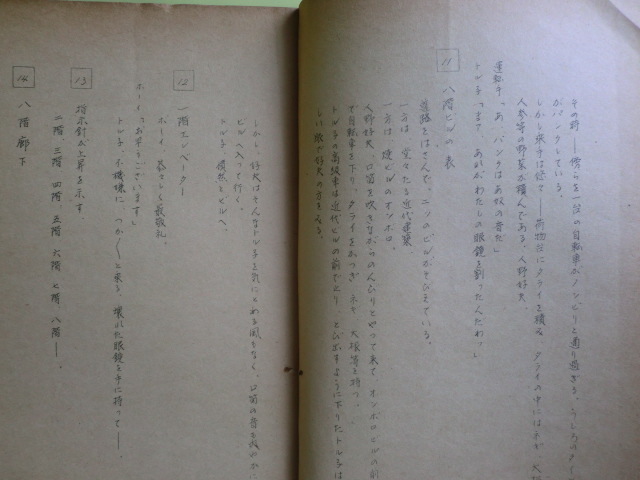 その時――傍らを一台の自転車がノンビリと通り過ぎる。うしろのタイ
がパンクしている。
しかし乗手は悠々――荷物台にタライを積み タライの中にはネギ 大根
人参等の野菜が積んである。人野好夫。
運転手「あ、パンクはあ奴の音だ」
トル子「まア、あれがわたしの眼鏡を割ったんだわッ」
11 八階ビルの表
道路をはさんで、二ツのビルがそびえている。
一方は、堂々たる近代建築。
一方は ビルのオンボロ。
人野好夫、口笛を吹きながらのんびりとやって来て オンボロビルの前
で自転車を下り、タライをかつぎ ネギ、大根等を持つ。
トル子の高級車は近代ビルの前でとまり、とび出すように下りたトル子は
しい眼で好夫の方をみる。
しかし、好夫はそんなトル子を気にとめる風もなく、口笛の音を
ビルへ入って行く。
トル子、憤然とビルへ。
12 一階エレベーター
ボーイ、恭々しく最敬礼。
ボーイ「お早うございます」
トル子、不機嫌に、つか〱と来る、壊れた眼鏡を手に持って――。
13 指示針が上昇を示す。
二階 三階 四階 五階 六階 七階 八階――。
14 八階廊下